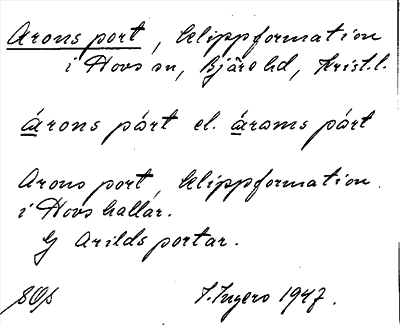 Arons port, klippformation
i Hovs sn, Bjäre hd, Krist.l.
árons pårt el. árams pårt
Arons port, klippformation
i Hovs hallar.
Ej Arilds portar.
SOs
I. Ingers 1947.